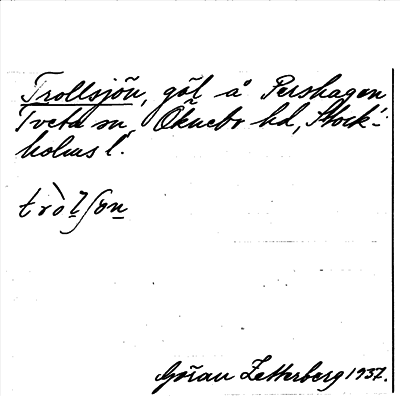 Trollsjön, göl å Pershagen
Tveta sn, Öknebo hd, Stock-
holms l.
tròlʃon
Göran Zetterberg 1937.